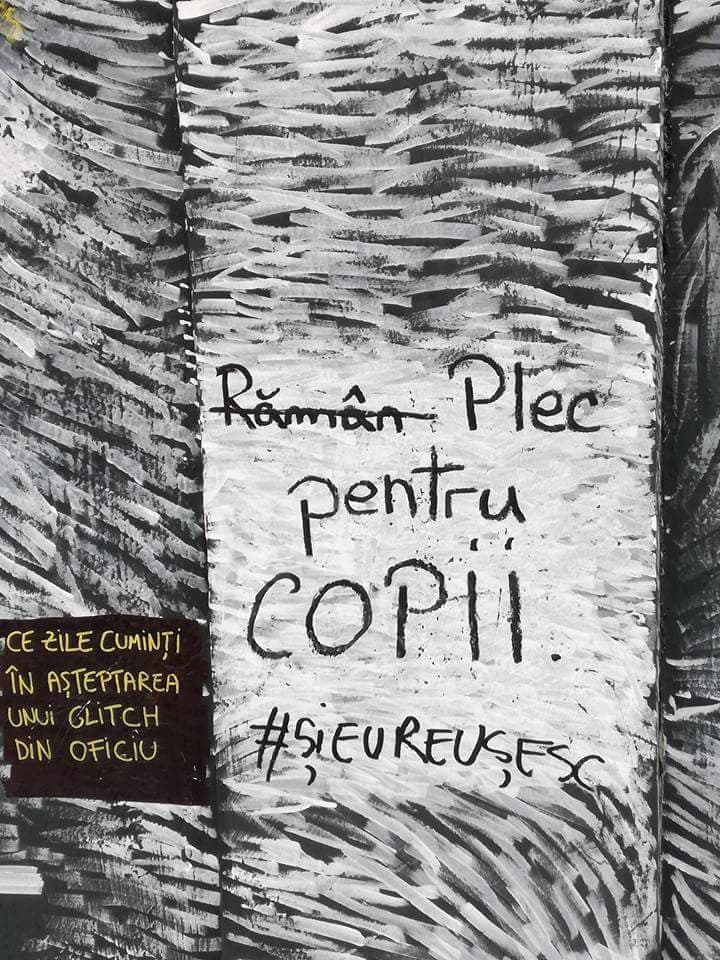 Rămân Plec
pentru
COPII.
#ȘIEUREUȘESC
CE ZILE CUMINȚI
ÎN AȘTEPTAREA
UNUI GLITCH
DIN OFICIU